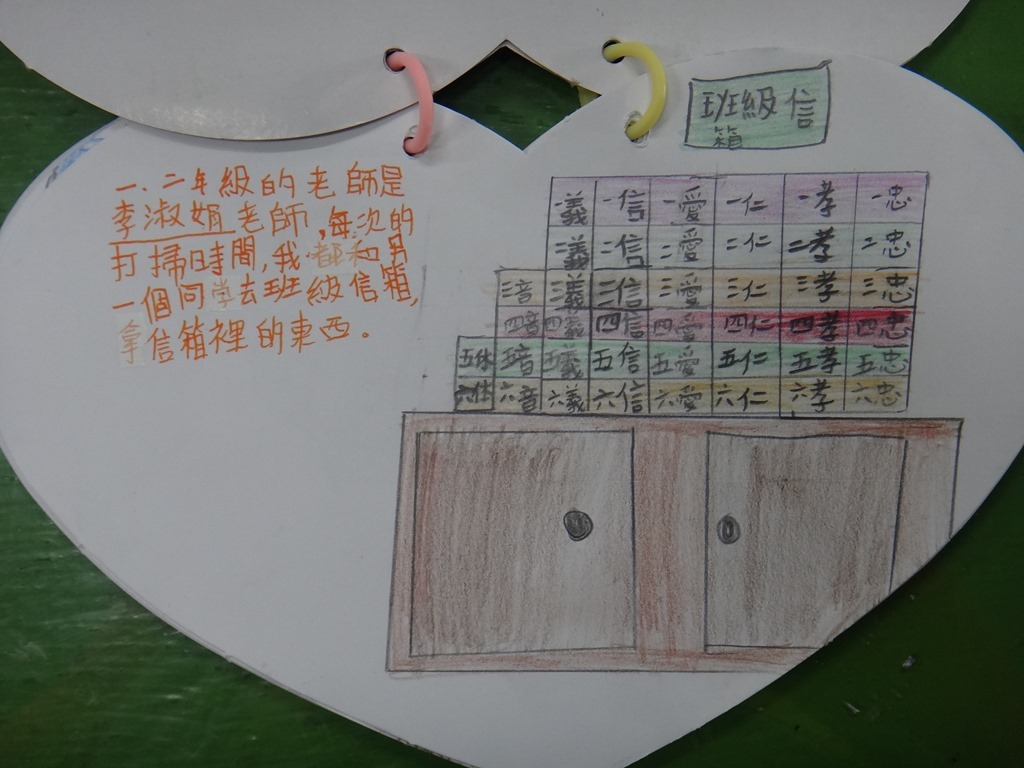 一、二年級的老師是
李淑娟老師,每次的
打掃時間,我都和另
一個同學去班級信箱,
拿信箱裡的東西。
班級信
箱
一義 一信 一愛 一仁 一孝 一忠
二義 二信 二愛 二仁 二孝 二忠
三音 三義 三信 三愛 三仁 三孝 三忠
四音 四義 四信 四愛 四仁 四孝 四忠
五体 五音 五義 五信 五愛 五仁 五孝 五忠
六体 六音 六義 六信 六愛 六仁 六孝 六忠